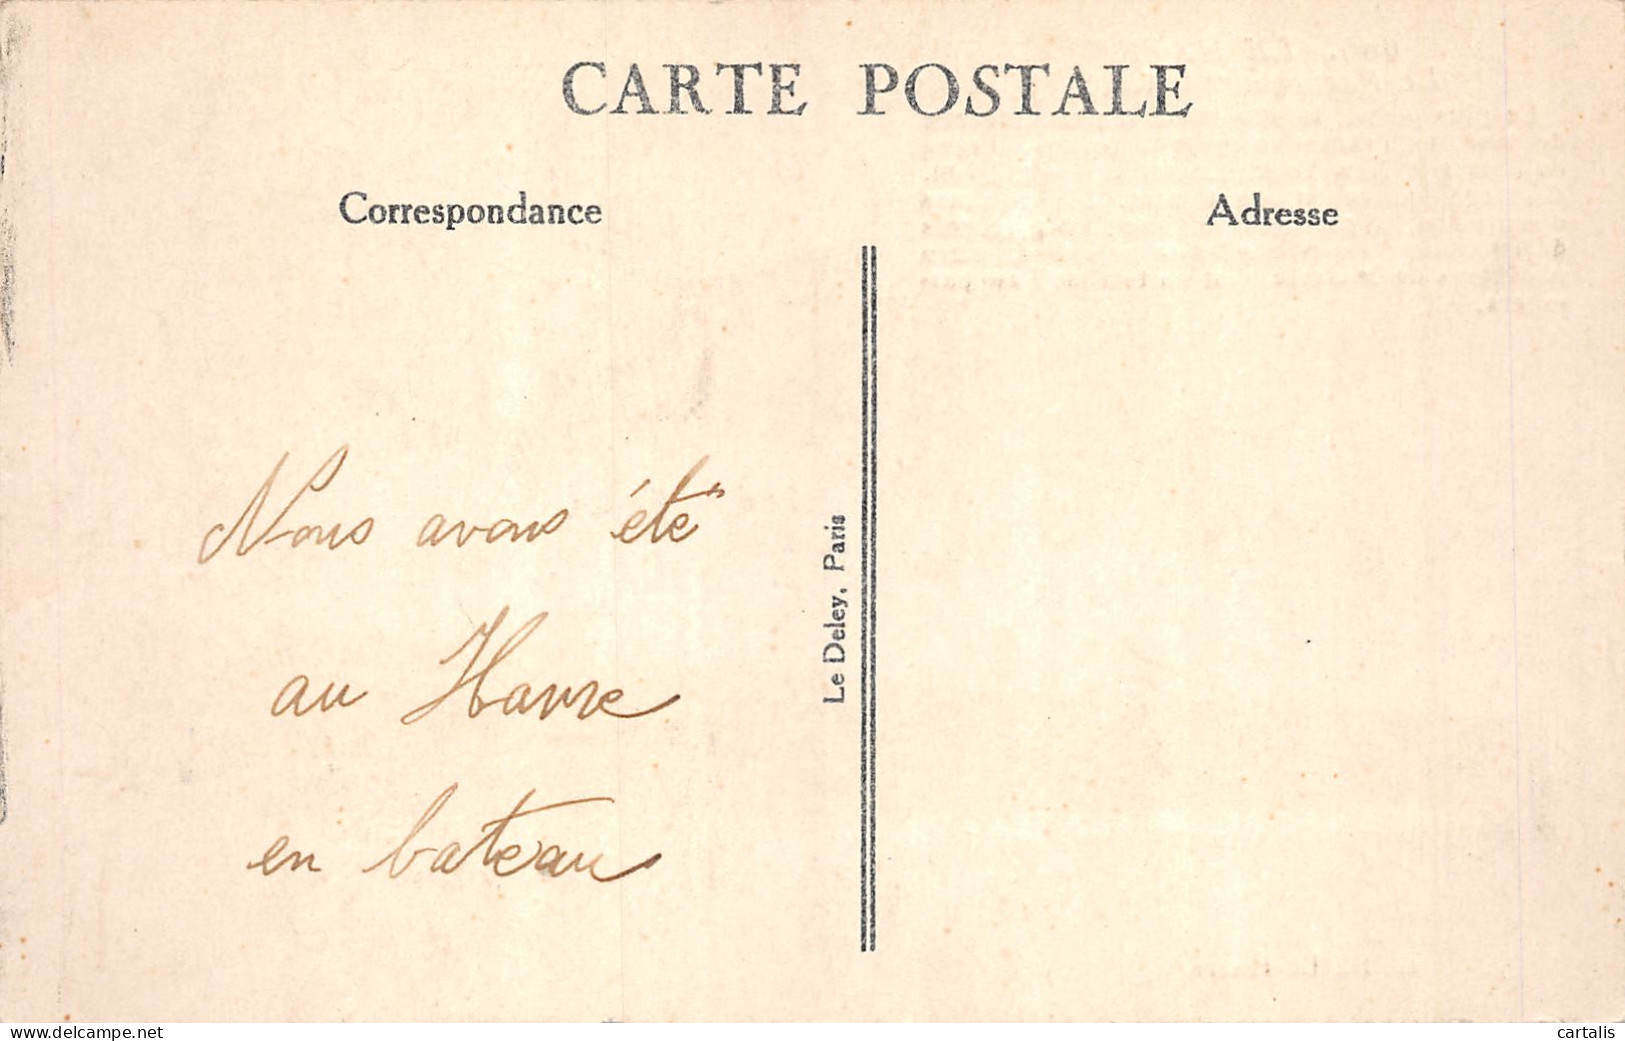 CARTE POSTALE
Correspondance
Adresse
Nous avons été
au Havre
en bateau
Le Deley, Paris
www.delcampe.net
cartalis